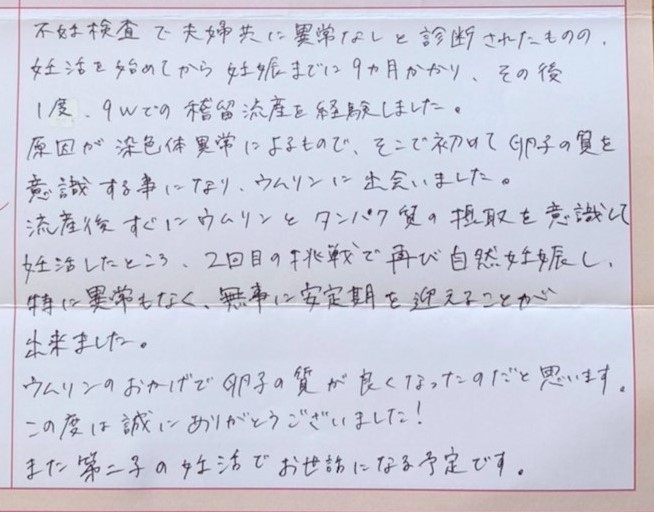 不妊検査で夫婦共に異常なしと診断されたものの、
妊活を始めてから妊娠までに9ヵ月かかり、その後
1度、9wでの稽留流産を経験しました。
原因が染色体異常によるもので、そこで初めて卵子の質を
意識する事になり、ウムリンに出会いました。
流産後すぐにウムリンとタンパク質の摂取を意識して
妊活したところ、2回目の挑戦で再び自然妊娠し、
特に異常もなく、無事に安定期を迎えることが
出来ました。
ウムリンのおかげで卵子の質が良くなったのだと思います。
この度は誠にありがとうございました!
また第二子の妊活でお世話になる予定です。